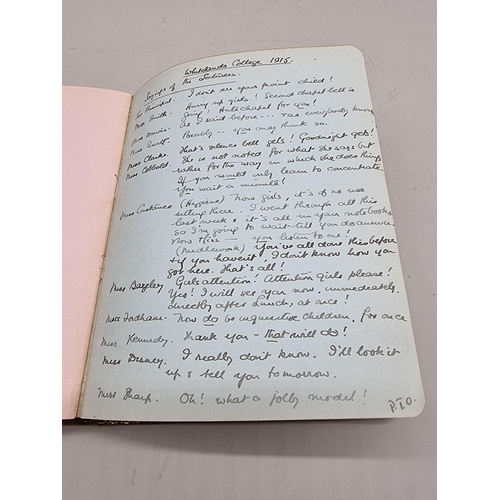 Whitelands College 1915.
Sayings of the Lecturers.
The Principal. I don't see your point child!
Miss Smith. Hurry up girls! Second chapel bell is
going! Antechapel for you!
Miss Davis. As I said before --- "as everybody knows
Miss Scott. Possibly -- you may think so.
Miss Clarke. That's silence bell gels! Goodnight gels!
Miss Cobbold. She is not noted for what she says but
rather for the way in which she does things
If you would only learn to concentrate
You wait a minute!
Miss Custance (Hygiene) Now girls, it's of no use
sitting there. I went through all this
last week & it's all in your notebooks
so I'm going to wait till you do answer
Now Miss — you listen to me!
(Needlework) You've all done this before
& if you haven't I don't know how you
got here. That's all!
Miss Bazeley Girls attention! Attention girls please!
Yes! I will see you now, immediately,
directly after lunch, at once!
Miss Fordham. Now do be inquisitive children, for once
Miss Kennedy. Thank you - that will do!
Miss Disney. I really don't know. I'll look it
up & tell you tomorrow.
Miss Sharp. Oh! what a jolly model!
P.T.O.